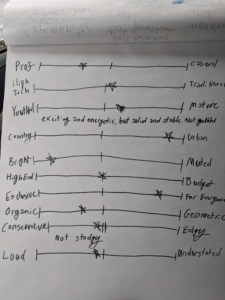 Prof. casual
High Tech Traditional
Youthful Mature
exciting and energetic, but solid and stable. Not youthful
Country Urban
Bright Muted
High End Budget
Exclusive For Everyone
Organic Geometric
Conservative Edgey
Not stodgey
Loud Understated